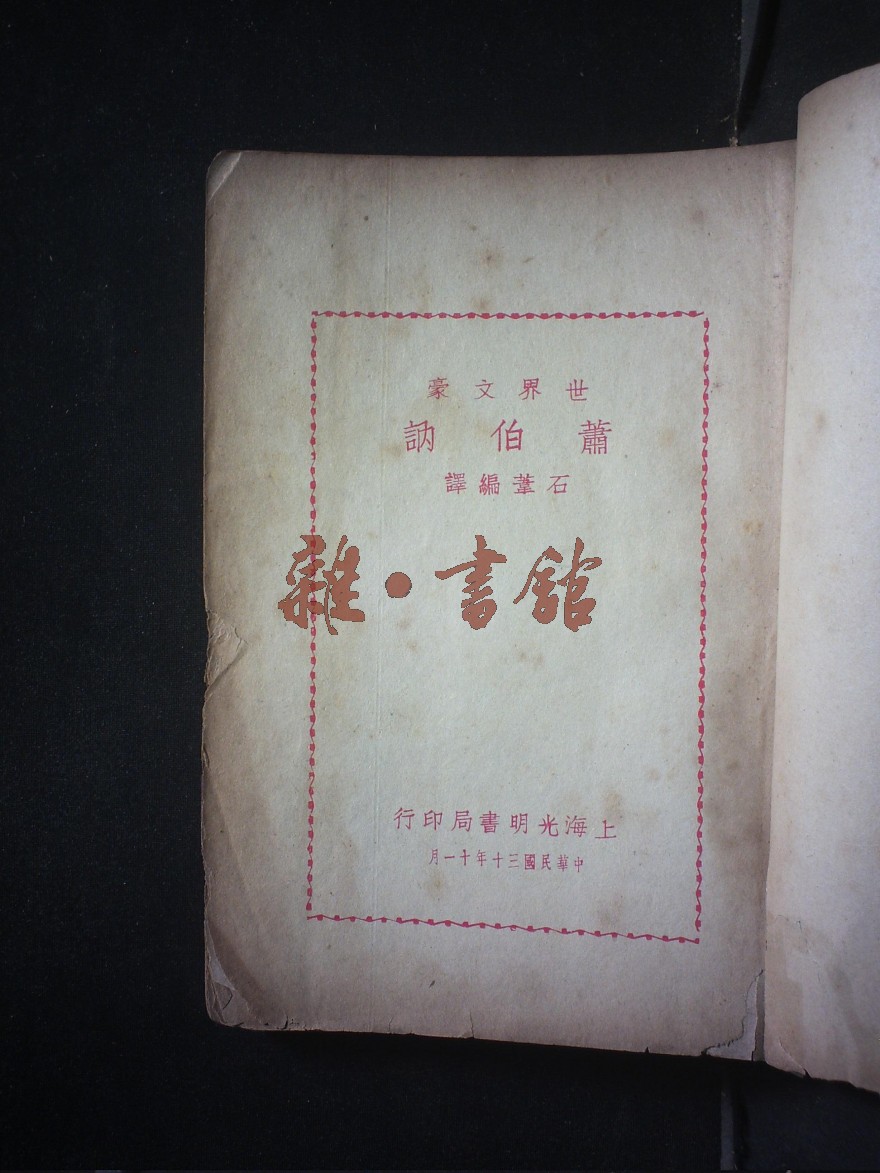 世界文豪
蕭伯訥
石葦編譯
雜·書館
上海光明書局印行
中華民國三十年十一月